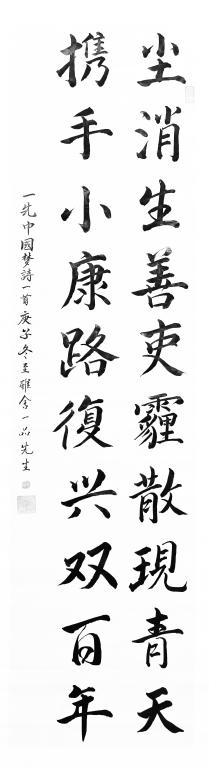 尘消生善吏霾散現青天
携手小康路復兴双百年
一先中國梦詩一首庚子冬至雅舍一品先生